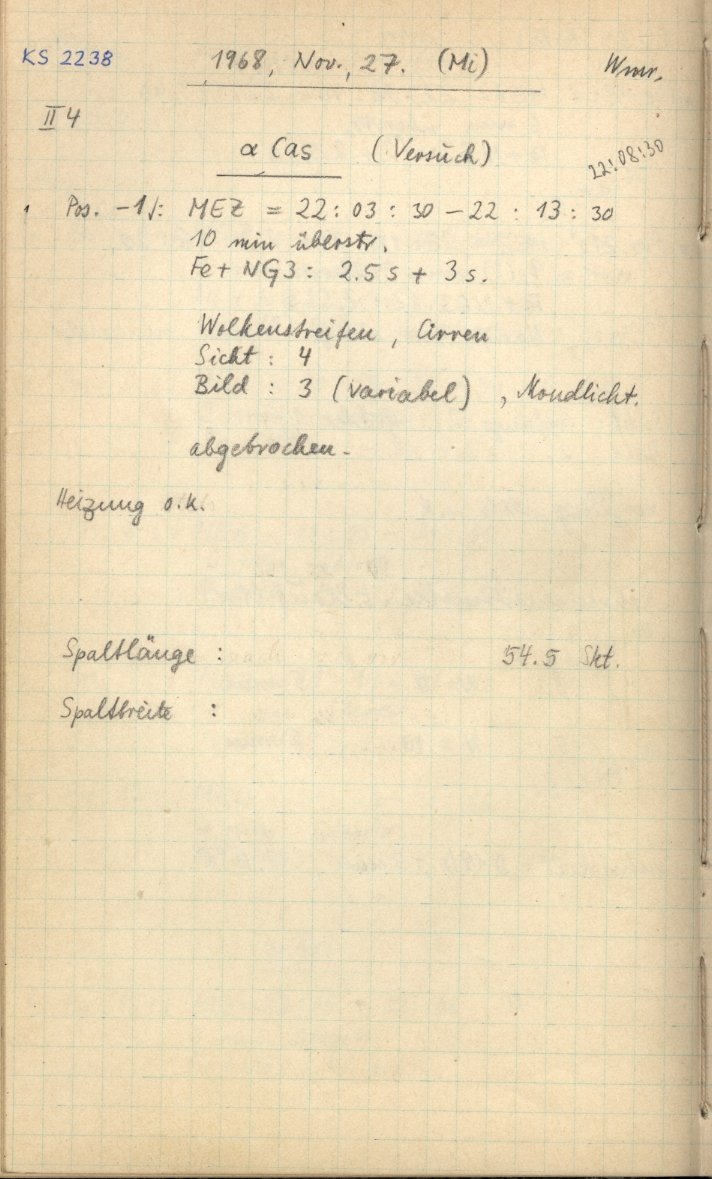 KS 2238 1968, Nov., 27. (Mi) Wmr.
II 4
α Cas (Versuch) 22:08:30
Pos. -1/: MEZ = 22:03:30 - 22:13:30
10 min überstr.
Fe + NG3: 2.5 s + 3 s.
Wolkenstreifen, Cirren
Sicht: 4
Bild: 3 (variabel), Mondlicht.
abgebrochen.
Heizung o.k.
Spaltlänge: 54.5 Skt.
Spaltbreite: